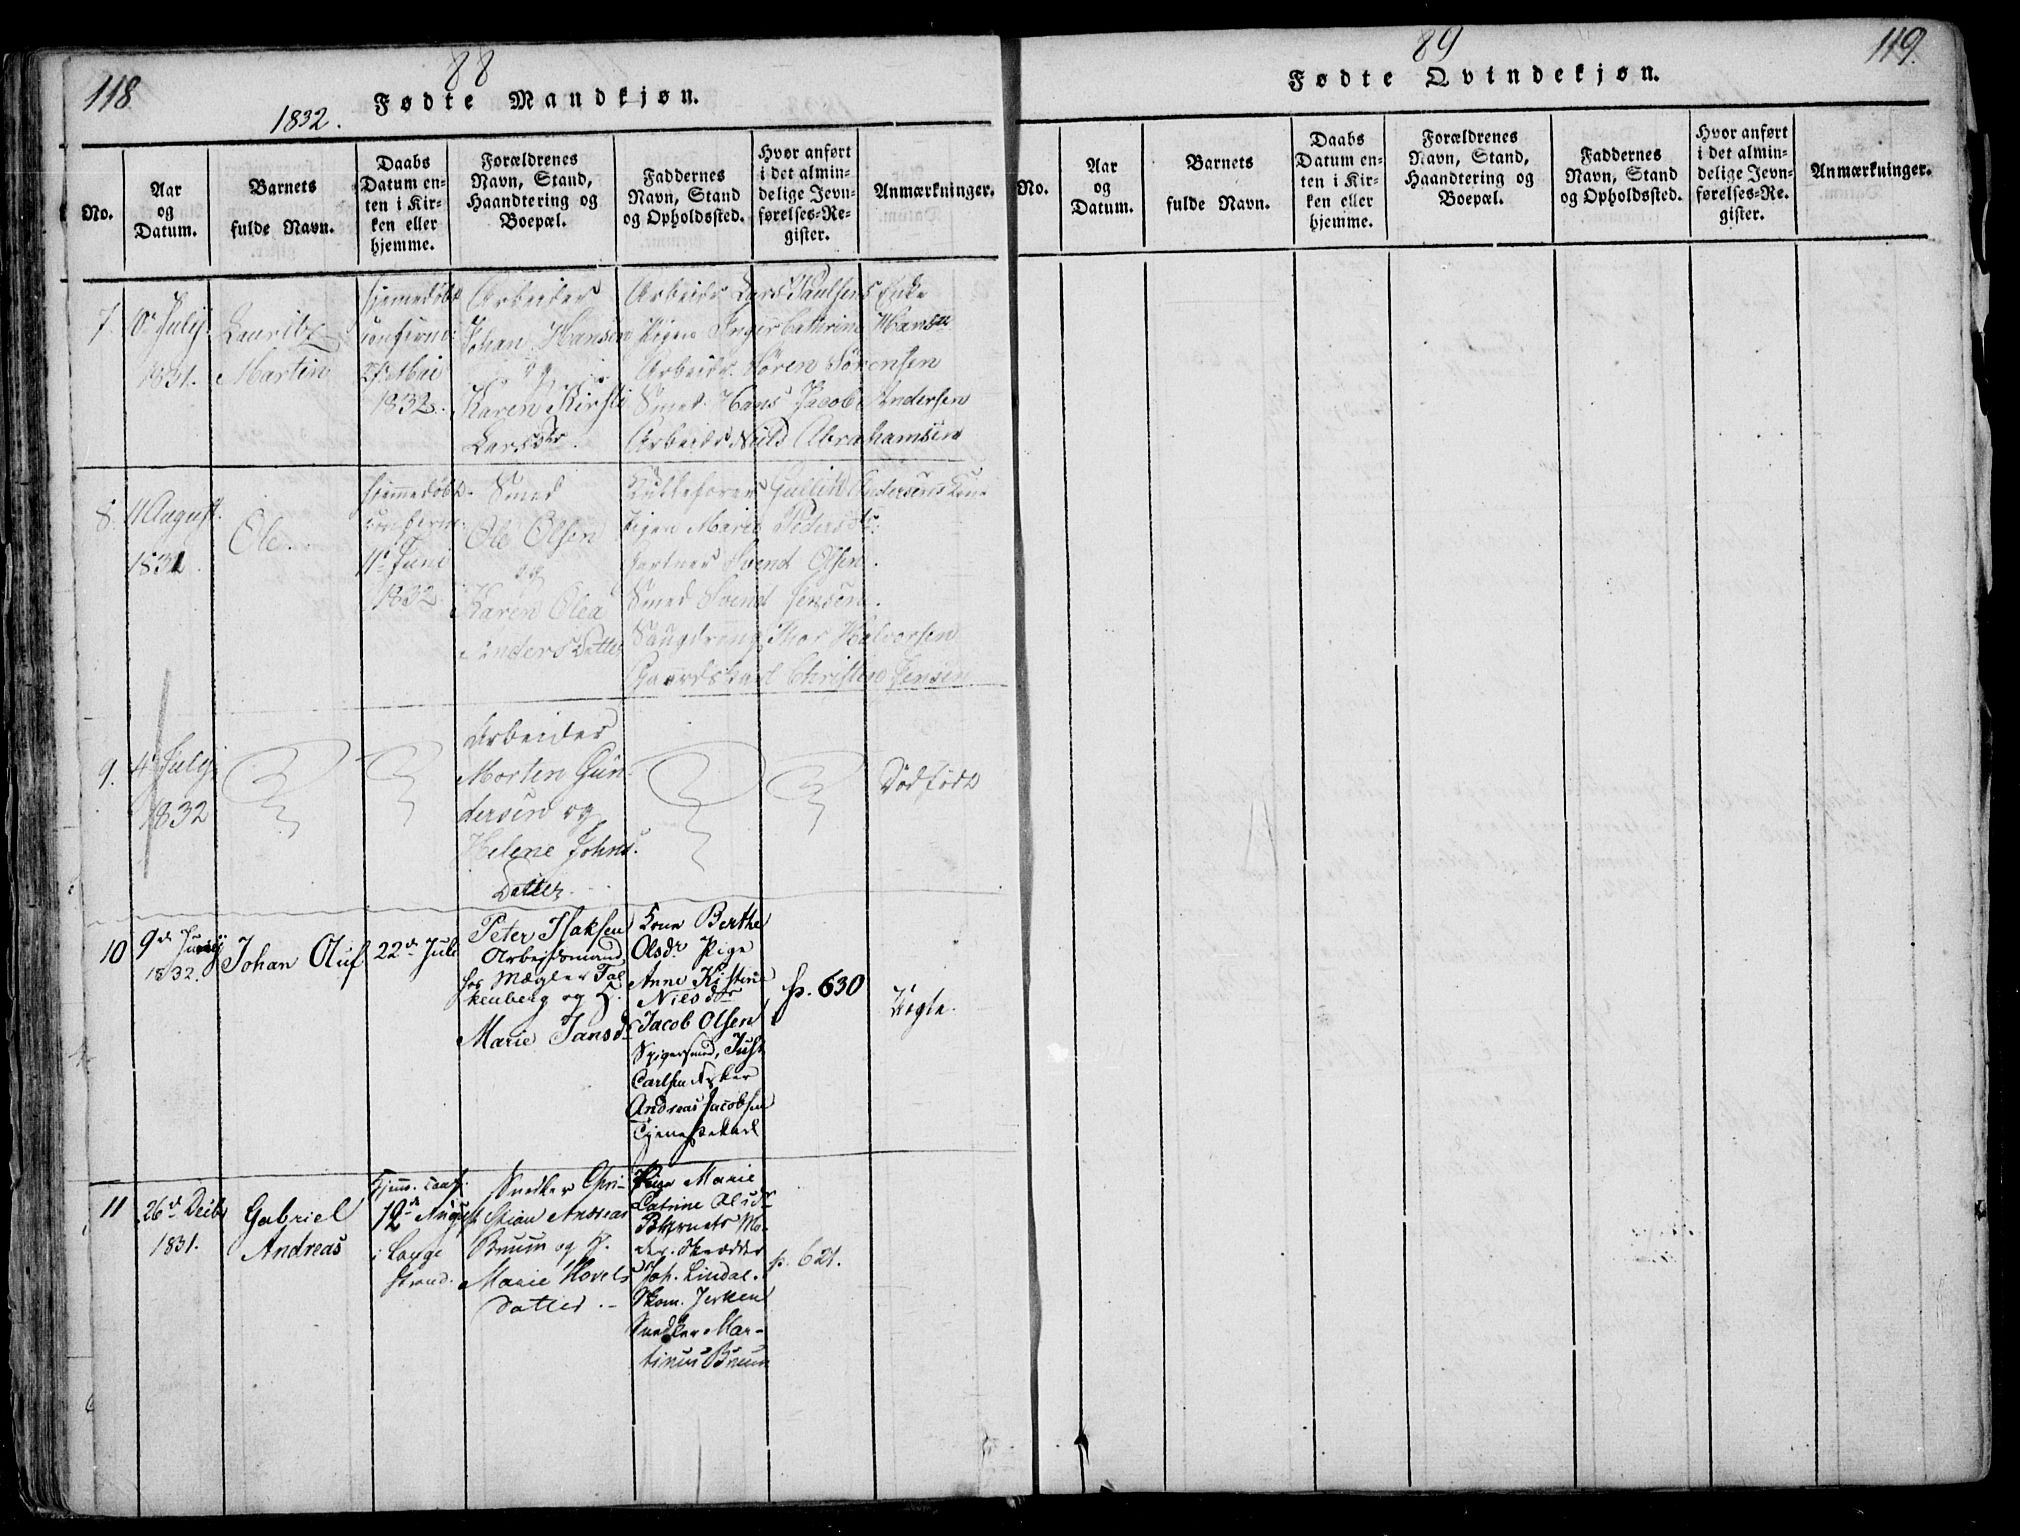 118
88
Fødte Mandkjøn.
1832.
No.
Aar
og
Datum.
Barnets
fulde Navn.
Daabs
Datum en-
ten i Kir-
ken eller
hjemme.
Forældrenes
Navn, Stand,
Haandtering og
Boepæl.
Faddernes
Navn, Stand
og Opholdssted.
Hvor anført
i det almin-
delige Jevn-
førelses-Re-
gister.
Anmærkninger.
7.
July
1831.
Lauritz
Martin
hjemedøbt
confirm:
Mai
1832.
Arbeider
Johan Hansen
og
Karen Kirsti
Larsdr.
Arbeidr Lars Paulsens Enke
Pigen Inger Cathrine Hansdr
Arbeidr. Søren Sørensen
Smed. Hans Jacob Andersen
Arbeidr Nils Abrahamsen
8.
11 August.
1831.
Ole.
hjemmedøbt.
confirm.
11te Juni
1832.
Smed
Ole Olsen
og
Karen Olea
Anders Datter
Gullik Andersens Kone
Pigen Maria Pedersdr.
Svend Olsen.
Smed Svend Jensen.
Saugdreng Thor Halvorsen
Christen Jensen
9.
4 July
1832
Arbeider
Morten Gun-
dersen og
Helene Johns.
Datter.
Dødfødt
10
9de July
1832.
Johan Oluf
22de Juli
Peter Isaksen
Arbejdsmand
hos Mægler Fal
kenberg og H.
Marie Jansd
Kone Berthe
Olsdr Pige
Anne Kistine
Nilsdr
Jacob Olsen
Spigersmed, Just
Carlsen
Andreas Jacobsen
Tjenestekarl
p. 630
Ægte.
11
26de Decbr
1831.
Gabriel
Andreas
Hjem. conf.
12de August
i Lange
strand.
Snedker Chri-
stian Andreas
Bruun og H.
Marie Hovels
datter.
Pige Marie
Catrine Olsdr
Barnets Mo-
der. Skrædder
Joh. Lindal.
Skom. Jersen
Snedker Mar-
tinus Bruun
p. 621.
119.
89
Fødte Qvindekjøn.
No.
Aar
og
Datum.
Barnets
fulde Navn.
Daabs
Datum en-
ten i Kir-
ken eller
hjemme.
Forældrenes
Navn, Stand,
Haandtering og
Boepæl.
Faddernes
Navn, Stand
og Opholdssted.
Hvor anført
i det almin-
delige Jevn-
førelses-Re-
gister.
Anmærkninger.